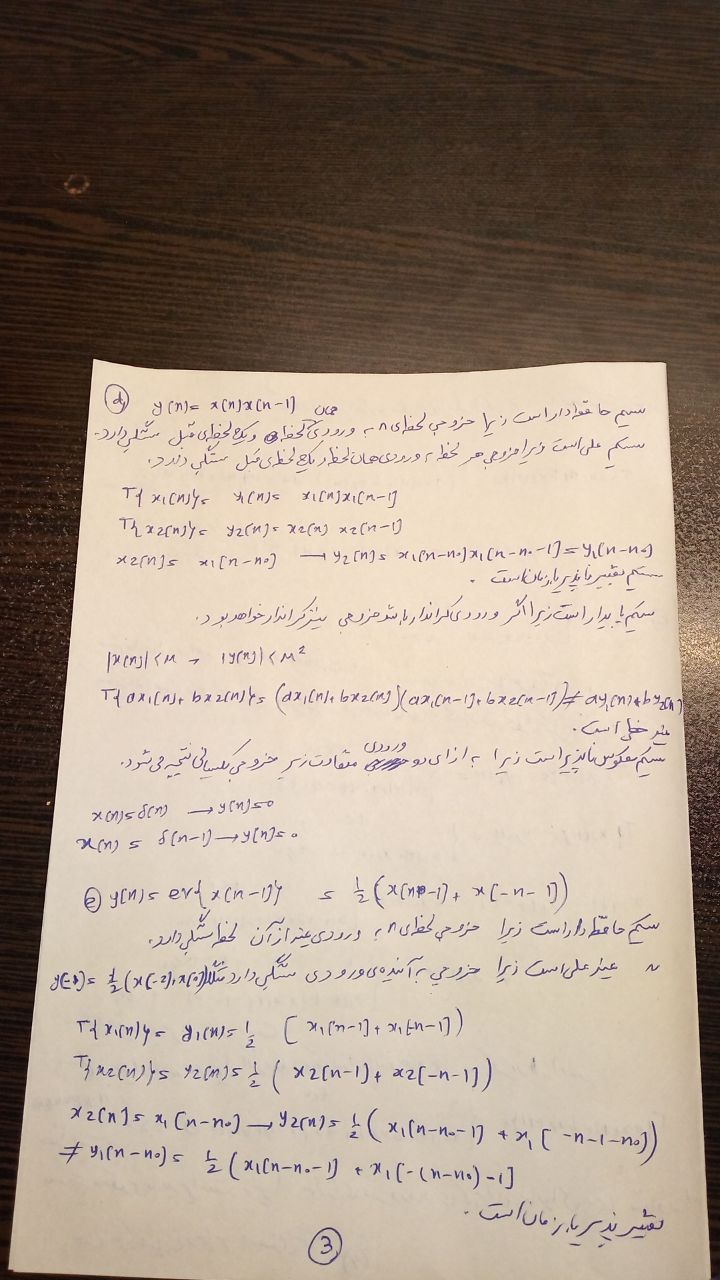 d) y[n] = x[n]x[n-1]
سیستم حافظه دار است زیرا خروجی لحظه‌ی n به ورودی همان لحظه و یک لحظه‌ی قبل بستگی دارد.
سیستم علی است زیرا خروجی هر لحظه به ورودی همان لحظه و یک لحظه‌ی قبل بستگی دارد.
T{x1[n]} = y1[n] = x1[n]x1[n-1]
T{x2[n]} = y2[n] = x2[n] x2[n-1]
x2[n] = x1[n-n0] → y2[n] = x1[n-n0]x1[n-n0-1] = y1[n-n0]
سیستم تغییر ناپذیر با زمان است.
سیستم پایدار است زیرا اگر ورودی کراندار باشد خروجی نیز کراندار خواهد بود.
|x[n]| < M → |y[n]| < M²
T{ax1[n] + bx2[n]} = (ax1[n]+bx2[n])(ax1[n-1]+bx2[n-1]) ≠ ay1[n]+by2[n]
غیر خطی است.
سیستم معکوس ناپذیر است زیرا به ازای دو ورودی متفاوت زیر خروجی یکسانی نتیجه می‌شود.
x[n] = δ[n] → y[n] = 0
x[n] = δ[n-1] → y[n] = 0
e) y[n] = ev{x[n-1]} = 1/2 (x[n-1] + x[-n-1])
سیستم حافظه دار است زیرا خروجی لحظه‌ی n به ورودی غیر از آن لحظه بستگی دارد.
〃 غیر علی است زیرا خروجی به آینده‌ی ورودی بستگی دارد مثلا y[-1] = 1/2 (x[-2]+x[0])
T{x1[n]} = y1[n] = 1/2 [x1[n-1] + x1[-n-1])
T{x2[n]} = y2[n] = 1/2 (x2[n-1] + x2[-n-1])
x2[n] = x1[n-n0] → y2[n] = 1/2 (x1[n-n0-1] + x1[-n-1-n0])
≠ y1[n-n0] = 1/2 (x1[n-n0-1] + x1[-(n-n0)-1]
تغییر پذیر با زمان است.
3